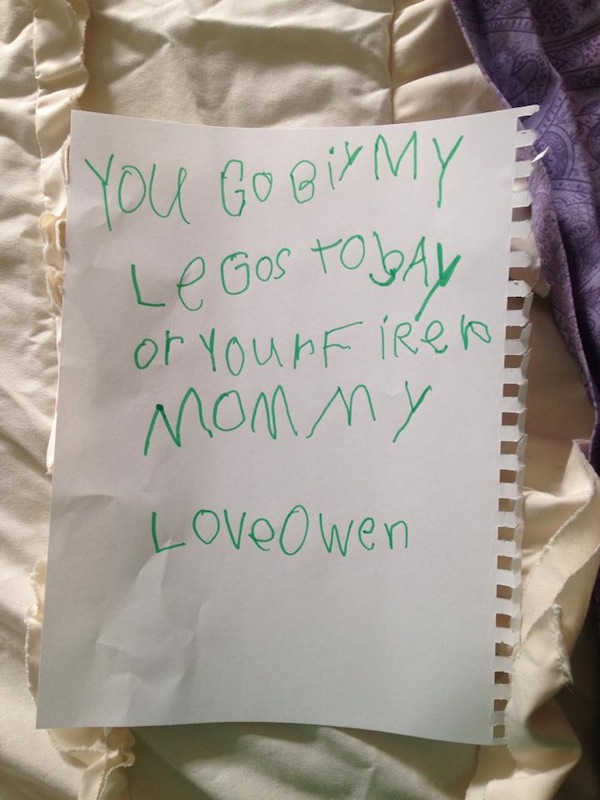 YOU GO BiY MY
LeGOS TODAY
Or YourF iReD
MOMMY
LOVe Owen